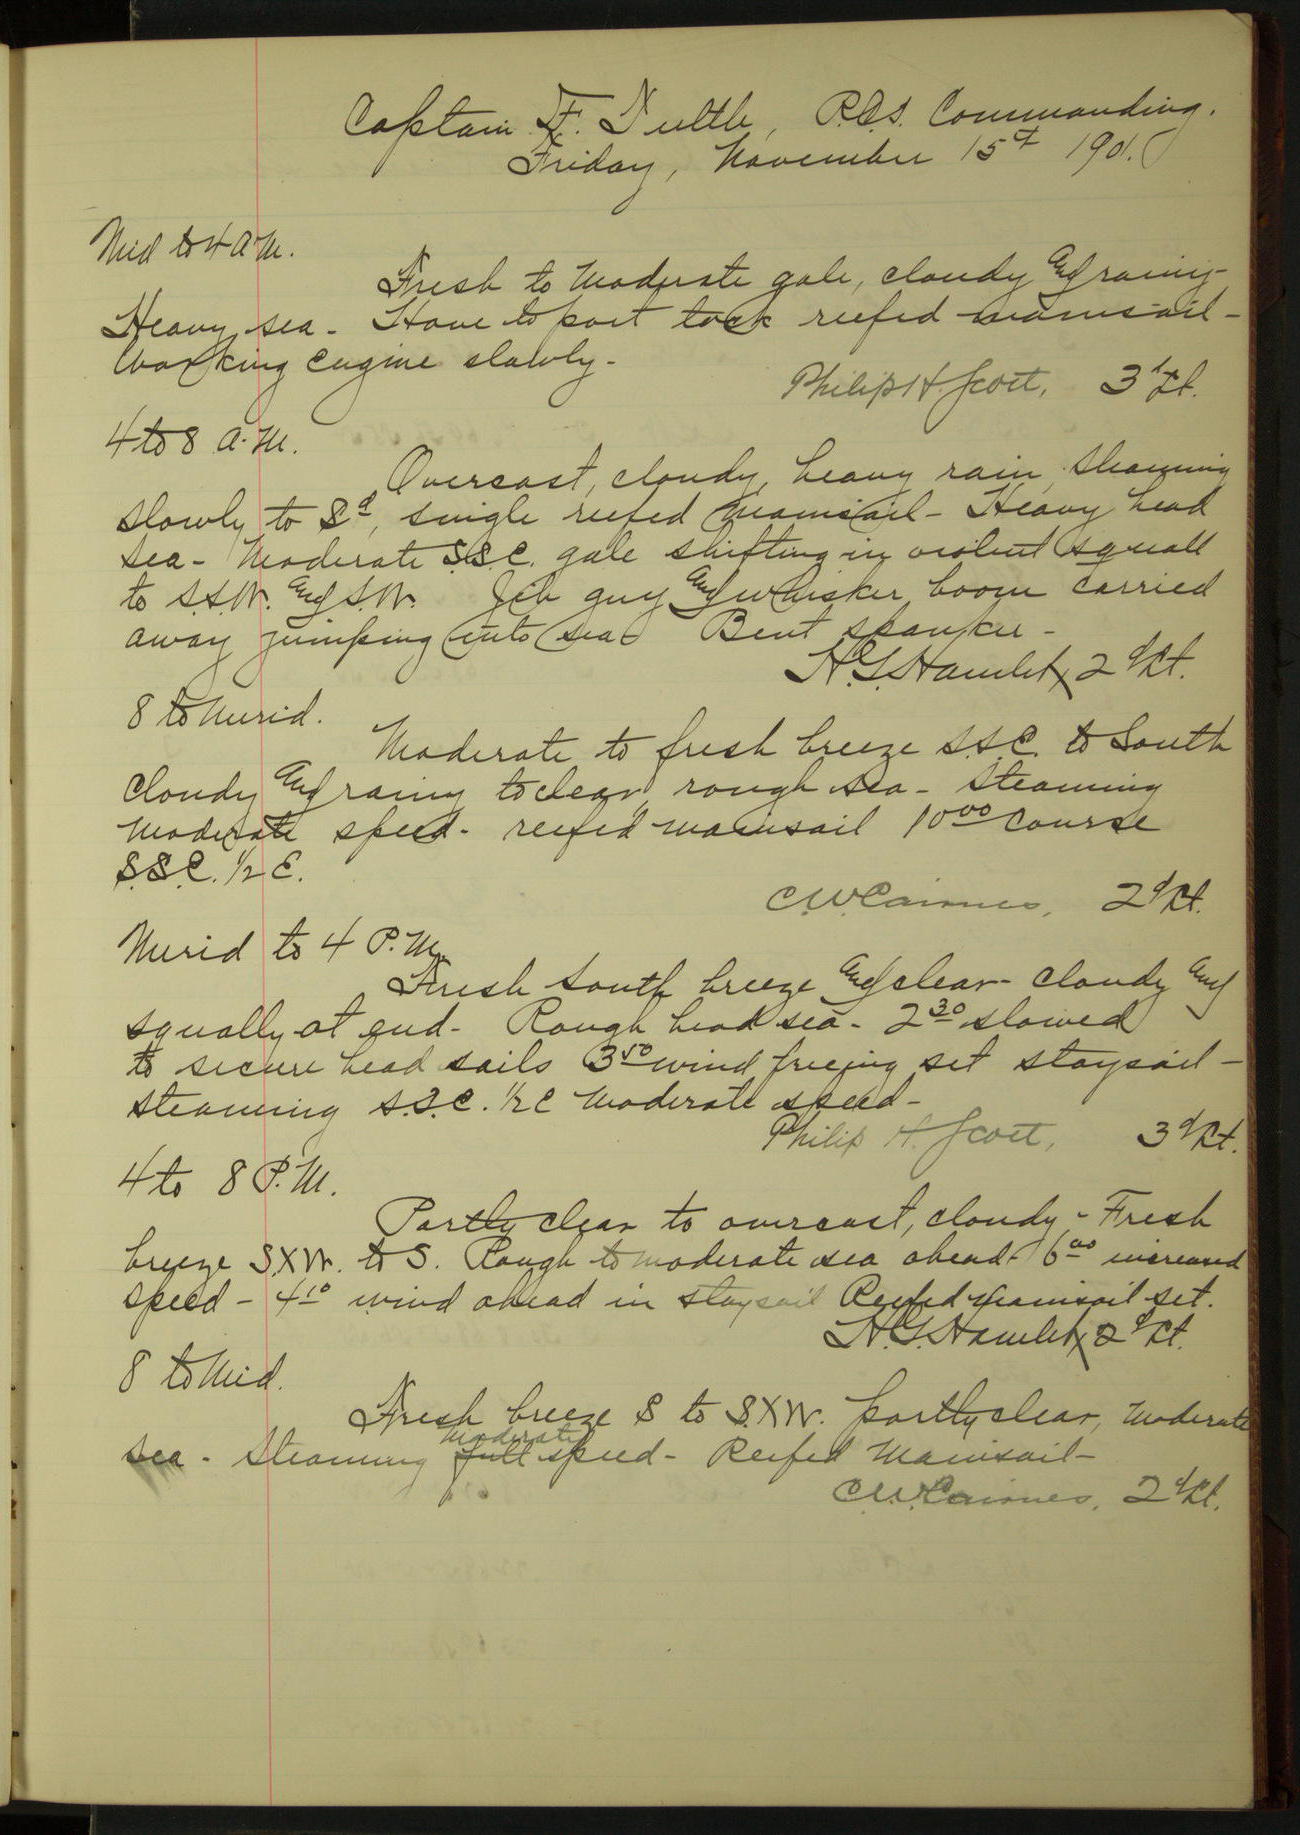 Captain F. Tuttle, R.C.S. Commanding.
Friday, November 15th 1901.
Mid to 4 A.M.
Fresh to Moderate gale, cloudy and rainy-
Heavy sea - Hove to port tack reefed mainsail -
Working engine slowly -
Philip H. Scott, 3d Lt.
4 to 8 A.M.
Overcast, cloudy, heavy rain, steaming
slowly to Sd, single reefed mainsail - Heavy head
sea - Moderate S.S.E. gale shifting in violent squall
to S.S.W. and S.W. Jib guy and whisker boom carried
away jumping into sea - Bent spanker -
H.G. Hamlet, 2d Lt.
8 to Merid.
Moderate to fresh breeze S.S.E. to South
cloudy and rainy to clear, rough sea - Steaming
moderate speed - reefed mainsail 10 00 course
S.S.E. 1/2 E.
C.W. Cairnes, 2d Lt.
Merid to 4 P.M.
Fresh South breeze and clear - cloudy and
squally at end - Rough head sea - 2 30 slowed
to secure head sails 3 50 wind freeing set staysail -
steaming S.S.E. 1/2 E Moderate speed -
Philip H. Scott, 3d Lt.
4 to 8 P.M.
Partly clear to overcast, cloudy - Fresh
breeze SXW. to S. Rough to moderate sea ahead - 6 00 increased
speed - 4 10 wind ahead in staysail Reefed mainsail set.
H.G. Hamlet, 2d Lt.
8 to Mid.
Fresh breeze S to S.XW. partly clear, Moderate
sea - Steaming full moderate speed - Reefed Mainsail -
C.W. Cairnes, 2d Lt.